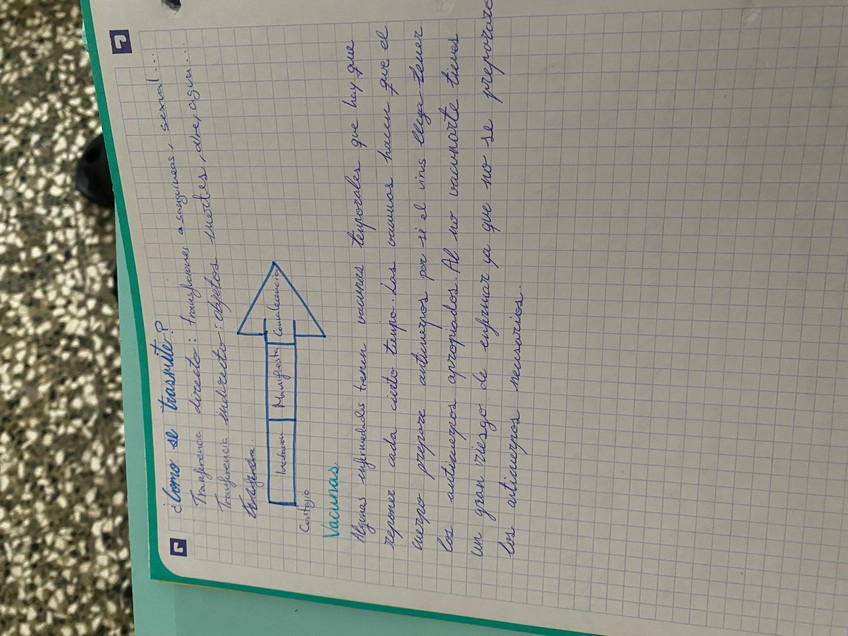 ¿Como se trasmite?
Tranferencia directo: transfusiones sanguineas, sexual...
Tranferencia indirecto: objetos inertes, aire, agua...
Incubación Manifiesta Convalecencia
Contagio
Vacunas.
Algunas enfermedades tienen vacunas temporales que hay que
reponer cada cierto tiempo. Las vacunas hacen que el
cuerpo prepare anticuerpos por si el virus llega tener
los anticuerpos apropiados. Al no vacunarte tienes
un gran riesgo de enfermar ya que no se prepararo
los anticuerpos necesarios.